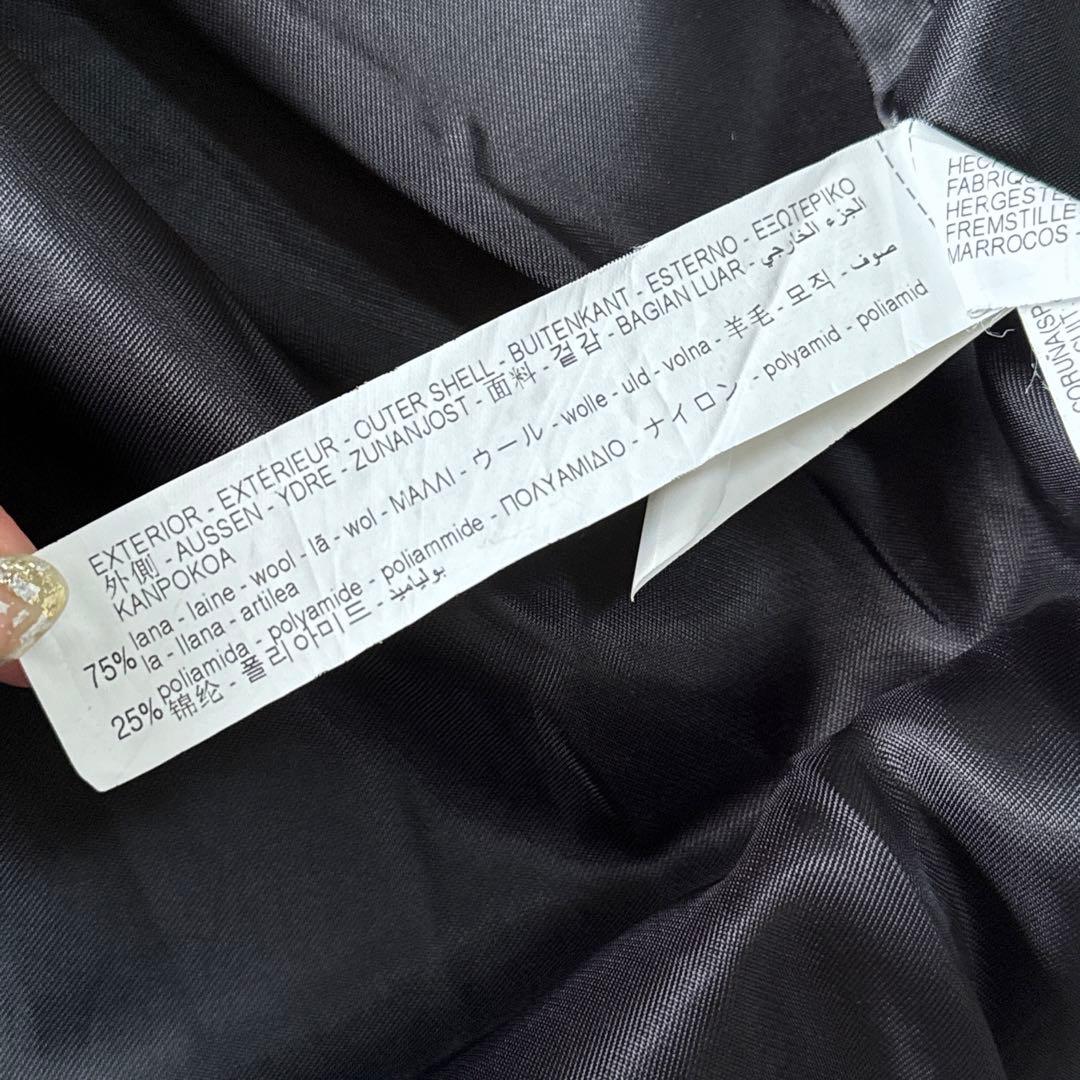 EXTERIOR - EXTÉRIEUR - OUTER SHELL - BUITENKANT - ESTERNO - ΕΞΩΤΕΡΙΚΟ
外側 - AUSSEN - YDRE - ZUNANJOST - 面料 - 겉감 - BAGIAN LUAR - الجزء الخارجي
KANPOKOA
75% lana - laine - wool - lã - wol - ΜΑΛΛΙ - ウール - wolle - uld - volna - 羊毛 - 모직 - صوف
la - llana - artilea
25% poliamida - polyamide - poliammide - ΠΟΛΥΑΜΙΔΙΟ - ナイロン - polyamid - poliamid
锦纶 - 폴리아미드 - بولياميد
FABRIQU
HERGESTE
FREMSTILLE
MARROCOS -